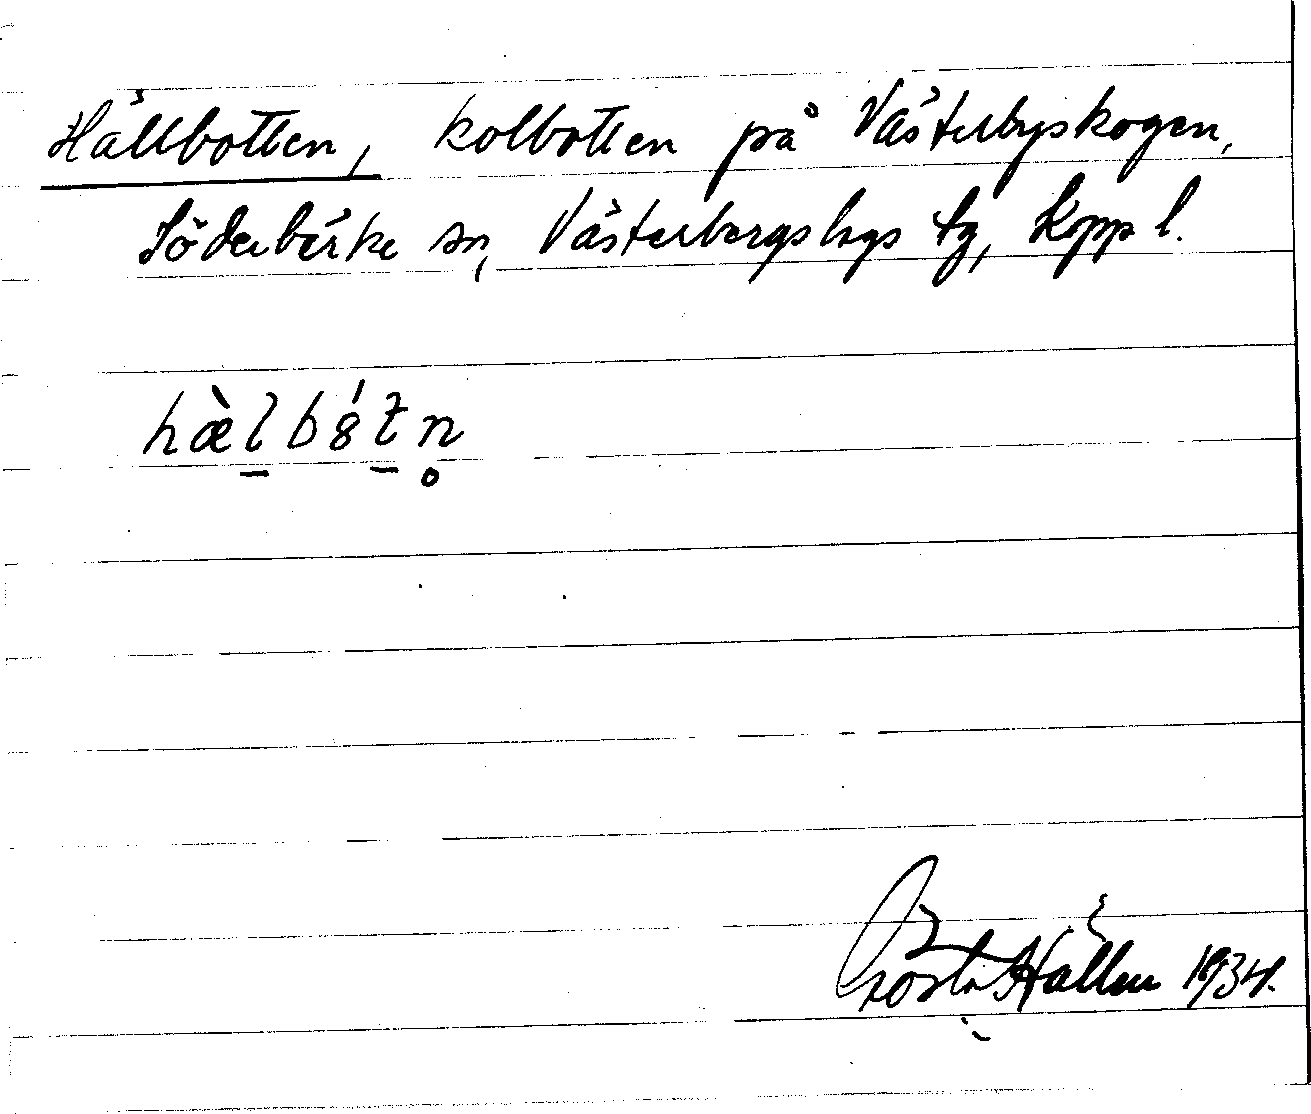 Hällbotten, kolbotten på Västerbyskogen,
Söderbärke sn, Västerbergslags tg, Kopp l.
hæ̀l̠bǿt̠n̥
Gösta Hallén 1934.